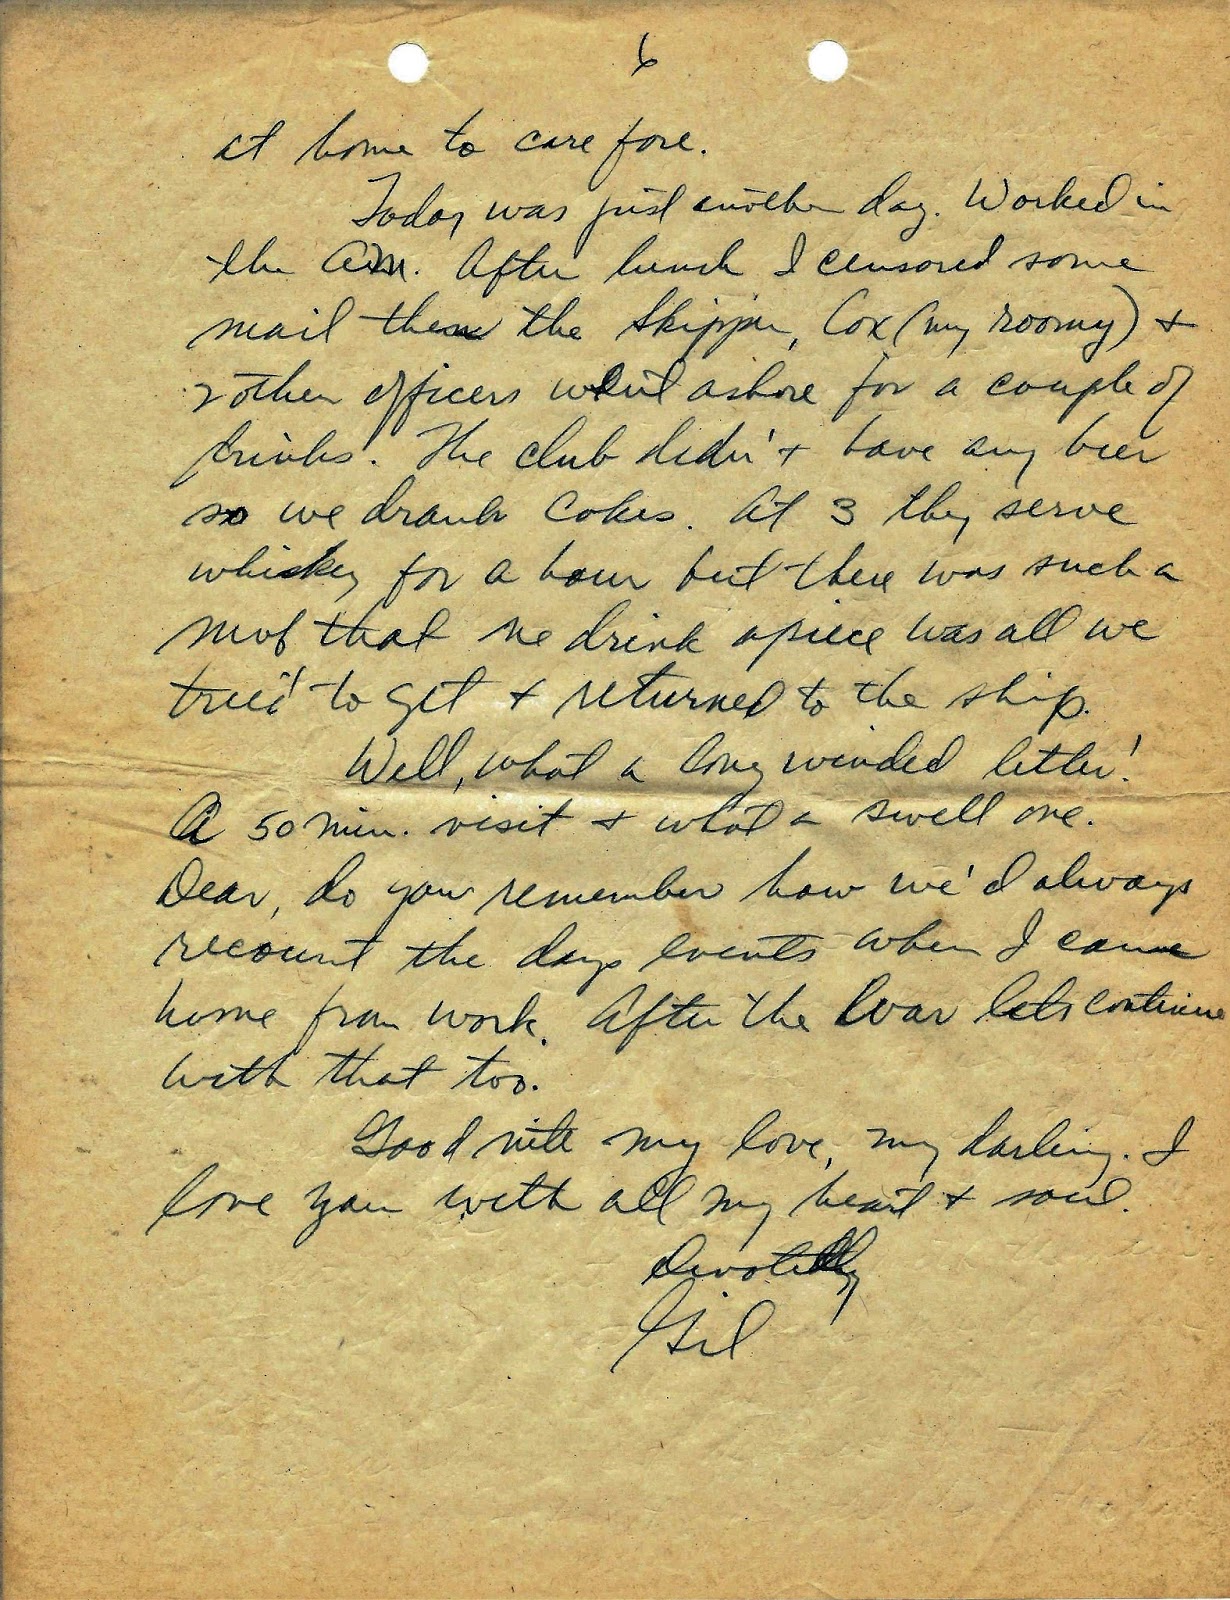 6
at home to care fore.
Today was just another day. Worked in
the AM. After lunch I censored some
mail then the Skipper, Cox (my roomy) +
2 other officers went ashore for a couple of
drinks. The club didn't have any beer
so we drank Cokes. At 3 they serve
whiskey for a hour but there was such a
mob that ne drink apiece was all we
tried to get + returned to the ship.
Well, what a long winded letter!
A 50 min. visit + what a swell one.
Dear, do you remember how we'd always
recount the days events when I came
home from work. After the War lets continue
with that too.
Good nite my love, my darling. I
love you with all my heart + soul.
Devotedly
Gil